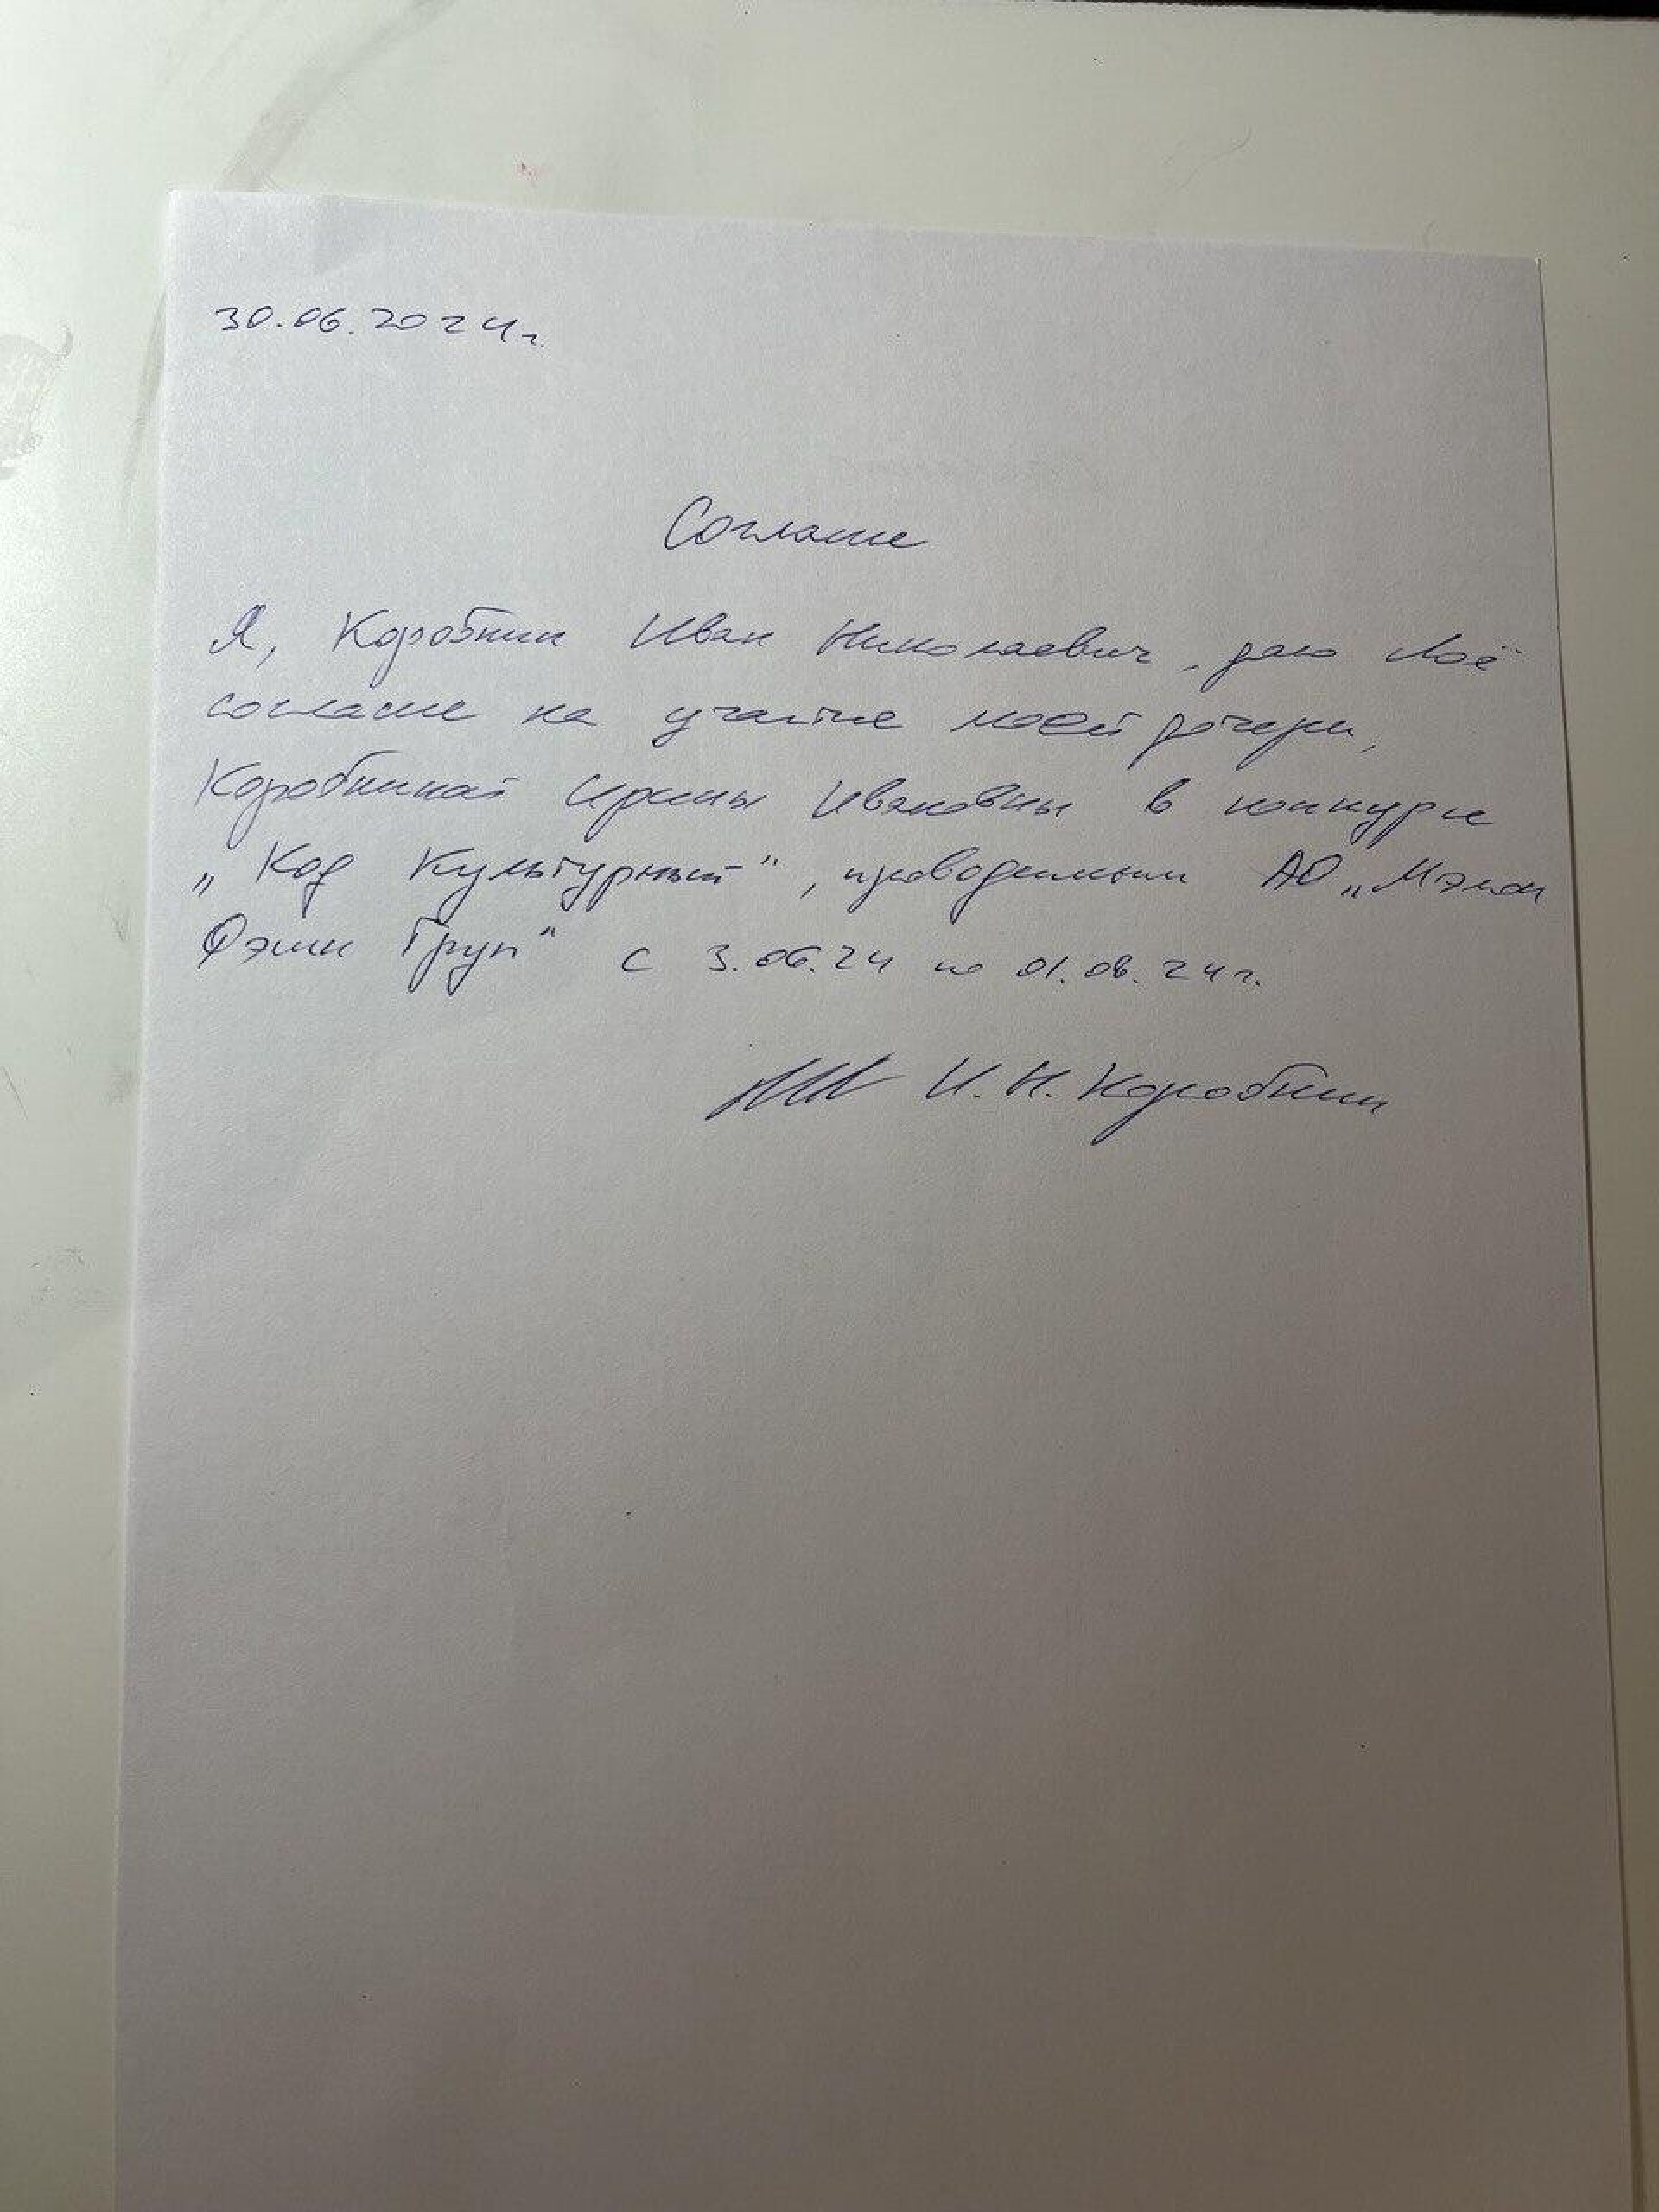 30.06.2024г.
Согласие
Я, Коробкин Иван Николаевич, даю своё
согласие на участие моей дочери,
Коробкиной Ирины Ивановны в конкурсе
„Код Культурный“, проводимым АО „Мэзон
Фэшн Груп“ с 3.06.24 по 01.08.24г.
И. Н. Коробкин